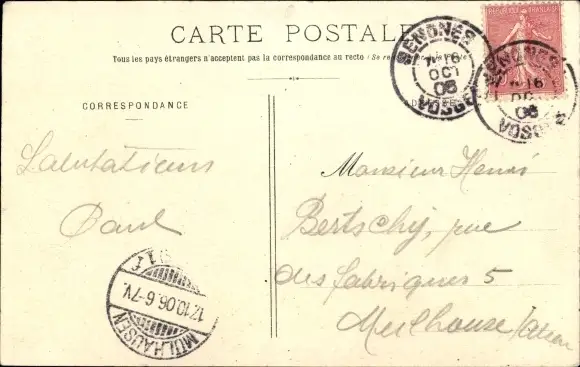 CARTE POSTALE
Tous les pays étrangers n'acceptent pas la correspondance au recto (Se re
CORRESPONDANCE
Salutations
Paul
Monsieur Henri
Bertschy, rue
des fabriques 5
Mulhouse
SENONES
16
OCT
06
VOSGES
SENONES
16
OC
06
VOSGES
RÉPUBLIQUE FRANÇAISE
MÜLHAUSEN
17.10.06.6-7V.